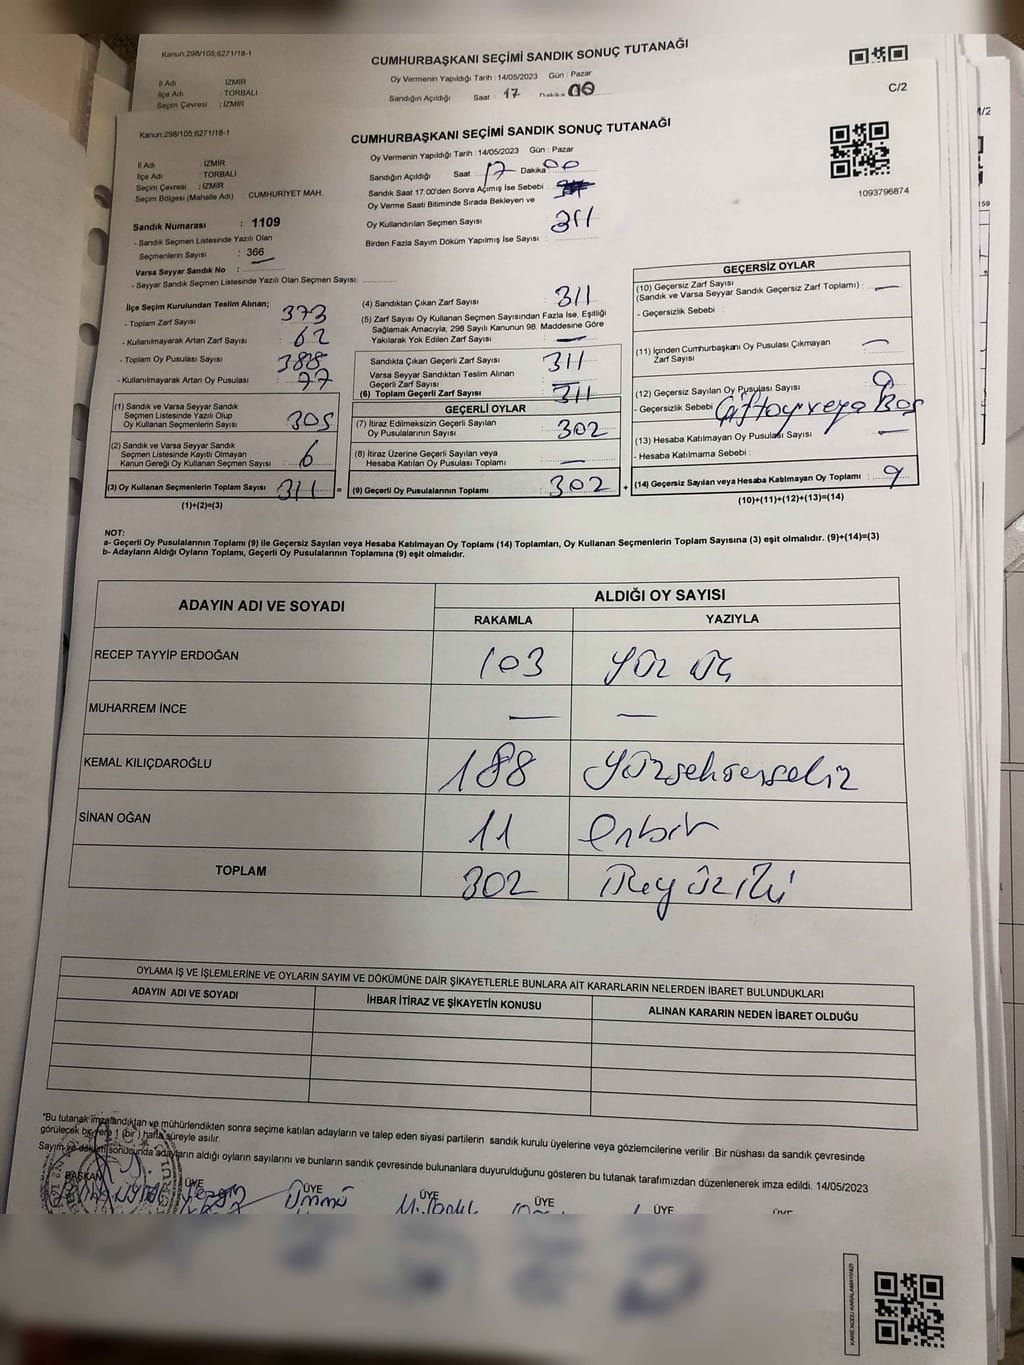 Kanun:298/105;6271/18-1
CUMHURBAŞKANI SEÇİMİ SANDIK SONUÇ TUTANAĞI
İl Adı : İZMİR
İlçe Adı : TORBALI
Seçim Çevresi : İZMİR
Oy Vermenin Yapıldığı Tarih : 14/05/2023 Gün : Pazar
Sandığın Açıldığı Saat : 17 Dakika 00
C/2
Kanun:298/105;6271/18-1
CUMHURBAŞKANI SEÇİMİ SANDIK SONUÇ TUTANAĞI
İl Adı : İZMİR
İlçe Adı : TORBALI
Seçim Çevresi : İZMİR
Seçim Bölgesi (Mahalle Adı) : CUMHURİYET MAH.
Oy Vermenin Yapıldığı Tarih : 14/05/2023 Gün : Pazar
Sandığın Açıldığı Saat : 17 Dakika 00
Sandık Saat 17.00'den Sonra Açımış İse Sebebi :
Oy Verme Saati Bitiminde Sırada Bekleyen ve
Oy Kullandırılan Seçmen Sayısı : 311
Birden Fazla Sayım Döküm Yapılmış İse Sayısı :
1093796874
Sandık Numarası : 1109
- Sandık Seçmen Listesinde Yazılı Olan
Seçmenlerin Sayısı : 366
Varsa Seyyar Sandık No :
- Seyyar Sandık Seçmen Listesinde Yazılı Olan Seçmen Sayısı:
İlçe Seçim Kurulundan Teslim Alınan;
- Toplam Zarf Sayısı : 373
- Kullanılmayarak Artan Zarf Sayısı : 62
- Toplam Oy Pusulası Sayısı : 388
- Kullanılmayarak Artan Oy Pusulası : 77
(1) Sandık ve Varsa Seyyar Sandık
Seçmen Listesinde Yazılı Olup
Oy Kullanan Seçmenlerin Sayısı : 305
(2) Sandık ve Varsa Seyyar Sandık
Seçmen Listesinde Kayıtlı Olmayan
Kanun Gereği Oy Kullanan Seçmen Sayısı : 6
(3) Oy Kullanan Seçmenlerin Toplam Sayısı : 311
(1)+(2)=(3)
(4) Sandıktan Çıkan Zarf Sayısı : 311
(5) Zarf Sayısı Oy Kullanan Seçmen Sayısından Fazla İse, Eşitliği
Sağlamak Amacıyla, 298 Sayılı Kanunun 98. Maddesine Göre
Yakılarak Yok Edilen Zarf Sayısı : —
Sandıkta Çıkan Geçerli Zarf Sayısı : 311
Varsa Seyyar Sandıktan Teslim Alınan
Geçerli Zarf Sayısı : —
(6) Toplam Geçerli Zarf Sayısı : 311
GEÇERLİ OYLAR
(7) İtiraz Edilmeksizin Geçerli Sayılan
Oy Pusulalarının Sayısı : 302
(8) İtiraz Üzerine Geçerli Sayılan veya
Hesaba Katılan Oy Pusulası Toplamı : —
= (9) Geçerli Oy Pusulalarının Toplamı : 302 +
GEÇERSİZ OYLAR
(10) Geçersiz Zarf Sayısı
(Sandık ve Varsa Seyyar Sandık Geçersiz Zarf Toplamı) : —
- Geçersizlik Sebebi :
(11) İçinden Cumhurbaşkanı Oy Pusulası Çıkmayan
Zarf Sayısı : —
(12) Geçersiz Sayılan Oy Pusulası Sayısı : 9
- Geçersizlik Sebebi : Çift oy veya Boş
(13) Hesaba Katılmayan Oy Pusulası Sayısı : —
- Hesaba Katılmama Sebebi :
(14) Geçersiz Sayılan veya Hesaba Katılmayan Oy Toplamı : 9
(10)+(11)+(12)+(13)=(14)
NOT:
a- Geçerli Oy Pusulalarının Toplamı (9) ile Geçersiz Sayılan veya Hesaba Katılmayan Oy Toplamı (14) Toplamları, Oy Kullanan Seçmenlerin Toplam Sayısına (3) eşit olmalıdır. (9)+(14)=(3)
b- Adayların Aldığı Oyların Toplamı, Geçerli Oy Pusulalarının Toplamına (9) eşit olmalıdır.
ADAYIN ADI VE SOYADI ALDIĞI OY SAYISI
RAKAMLA YAZIYLA
RECEP TAYYİP ERDOĞAN 103 Yüz üç
MUHARREM İNCE — —
KEMAL KILIÇDAROĞLU 188 Yüzseksensekiz
SİNAN OĞAN 11 Onbir
TOPLAM 302 Üçyüziki
OYLAMA İŞ VE İŞLEMLERİNE VE OYLARIN SAYIM VE DÖKÜMÜNE DAİR ŞİKAYETLERLE BUNLARA AİT KARARLARIN NELERDEN İBARET BULUNDUKLARI
ADAYIN ADI VE SOYADI İHBAR İTİRAZ VE ŞİKAYETİN KONUSU ALINAN KARARIN NEDEN İBARET OLDUĞU
*Bu tutanak imzalandıktan ve mühürlendikten sonra seçime katılan adayların ve talep eden siyasi partilerin sandık kurulu üyelerine veya gözlemcilerine verilir .Bir nüshası da sandık çevresinde
görülecek bir yere 1 (bir ) hafta süreyle asılır.
Sayım ve döküm sonucunda adayların aldığı oyların sayılarını ve bunların sandık çevresinde bulunanlara duyurulduğunu gösteren bu tutanak tarafımızdan düzenlenerek imza edildi. 14/05/2023
BAŞKAN ÜYE ÜYE ÜYE ÜYE ÜYE ÜYE
Ümmü